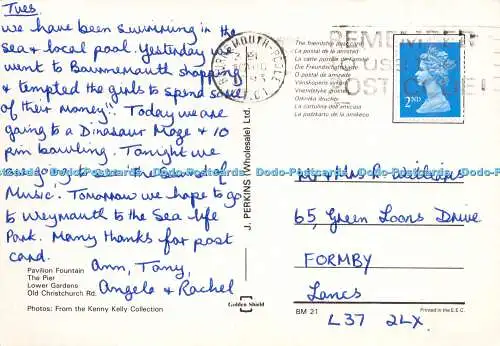 Tues
we have been swimming in the
sea & local pool. Yesterday we
went to Bournemouth shopping
& tempted the girls to spend some
of their money! Today we are
going to a Dinasaur Maze & 10
pin bowling. Tonight we
are going to see The Sound of
Music. Tomorrow we hope to go
to Weymouth to the Sea life
Park. Many thanks for post
card.
Ann, Tony,
Angela & Rachel
Pavilion Fountain
The Pier
Lower Gardens
Old Christchurch Rd.
Photos: From the Kenny Kelly Collection
J. PERKINS (Wholesale) Ltd.
Golden Shield
BOURNEMOUTH-POOLE
The friendship postcard
La postal de la amistad
La carte postale de l'amitié
Die Freundschaftskarte
O postal da amizade
Vriendschapskaart
La cartolina dell'amicizia
REMEMBER
USE
POSTCODE
2ND
Mr & Mrs R Williams
65, Green Loons Drive
FORMBY
Lancs
L37 2LX.
BM 21
Printed in the E.E.C.
Dodo-Postcards Dodo-Postcards Dodo-Postcards Dodo-Postcards Dodo-Postcards